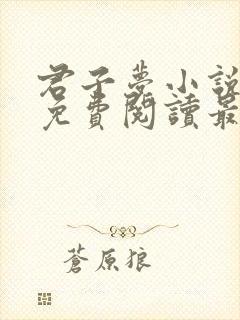 君子夢小說
免費閱讀最
蒼原狼